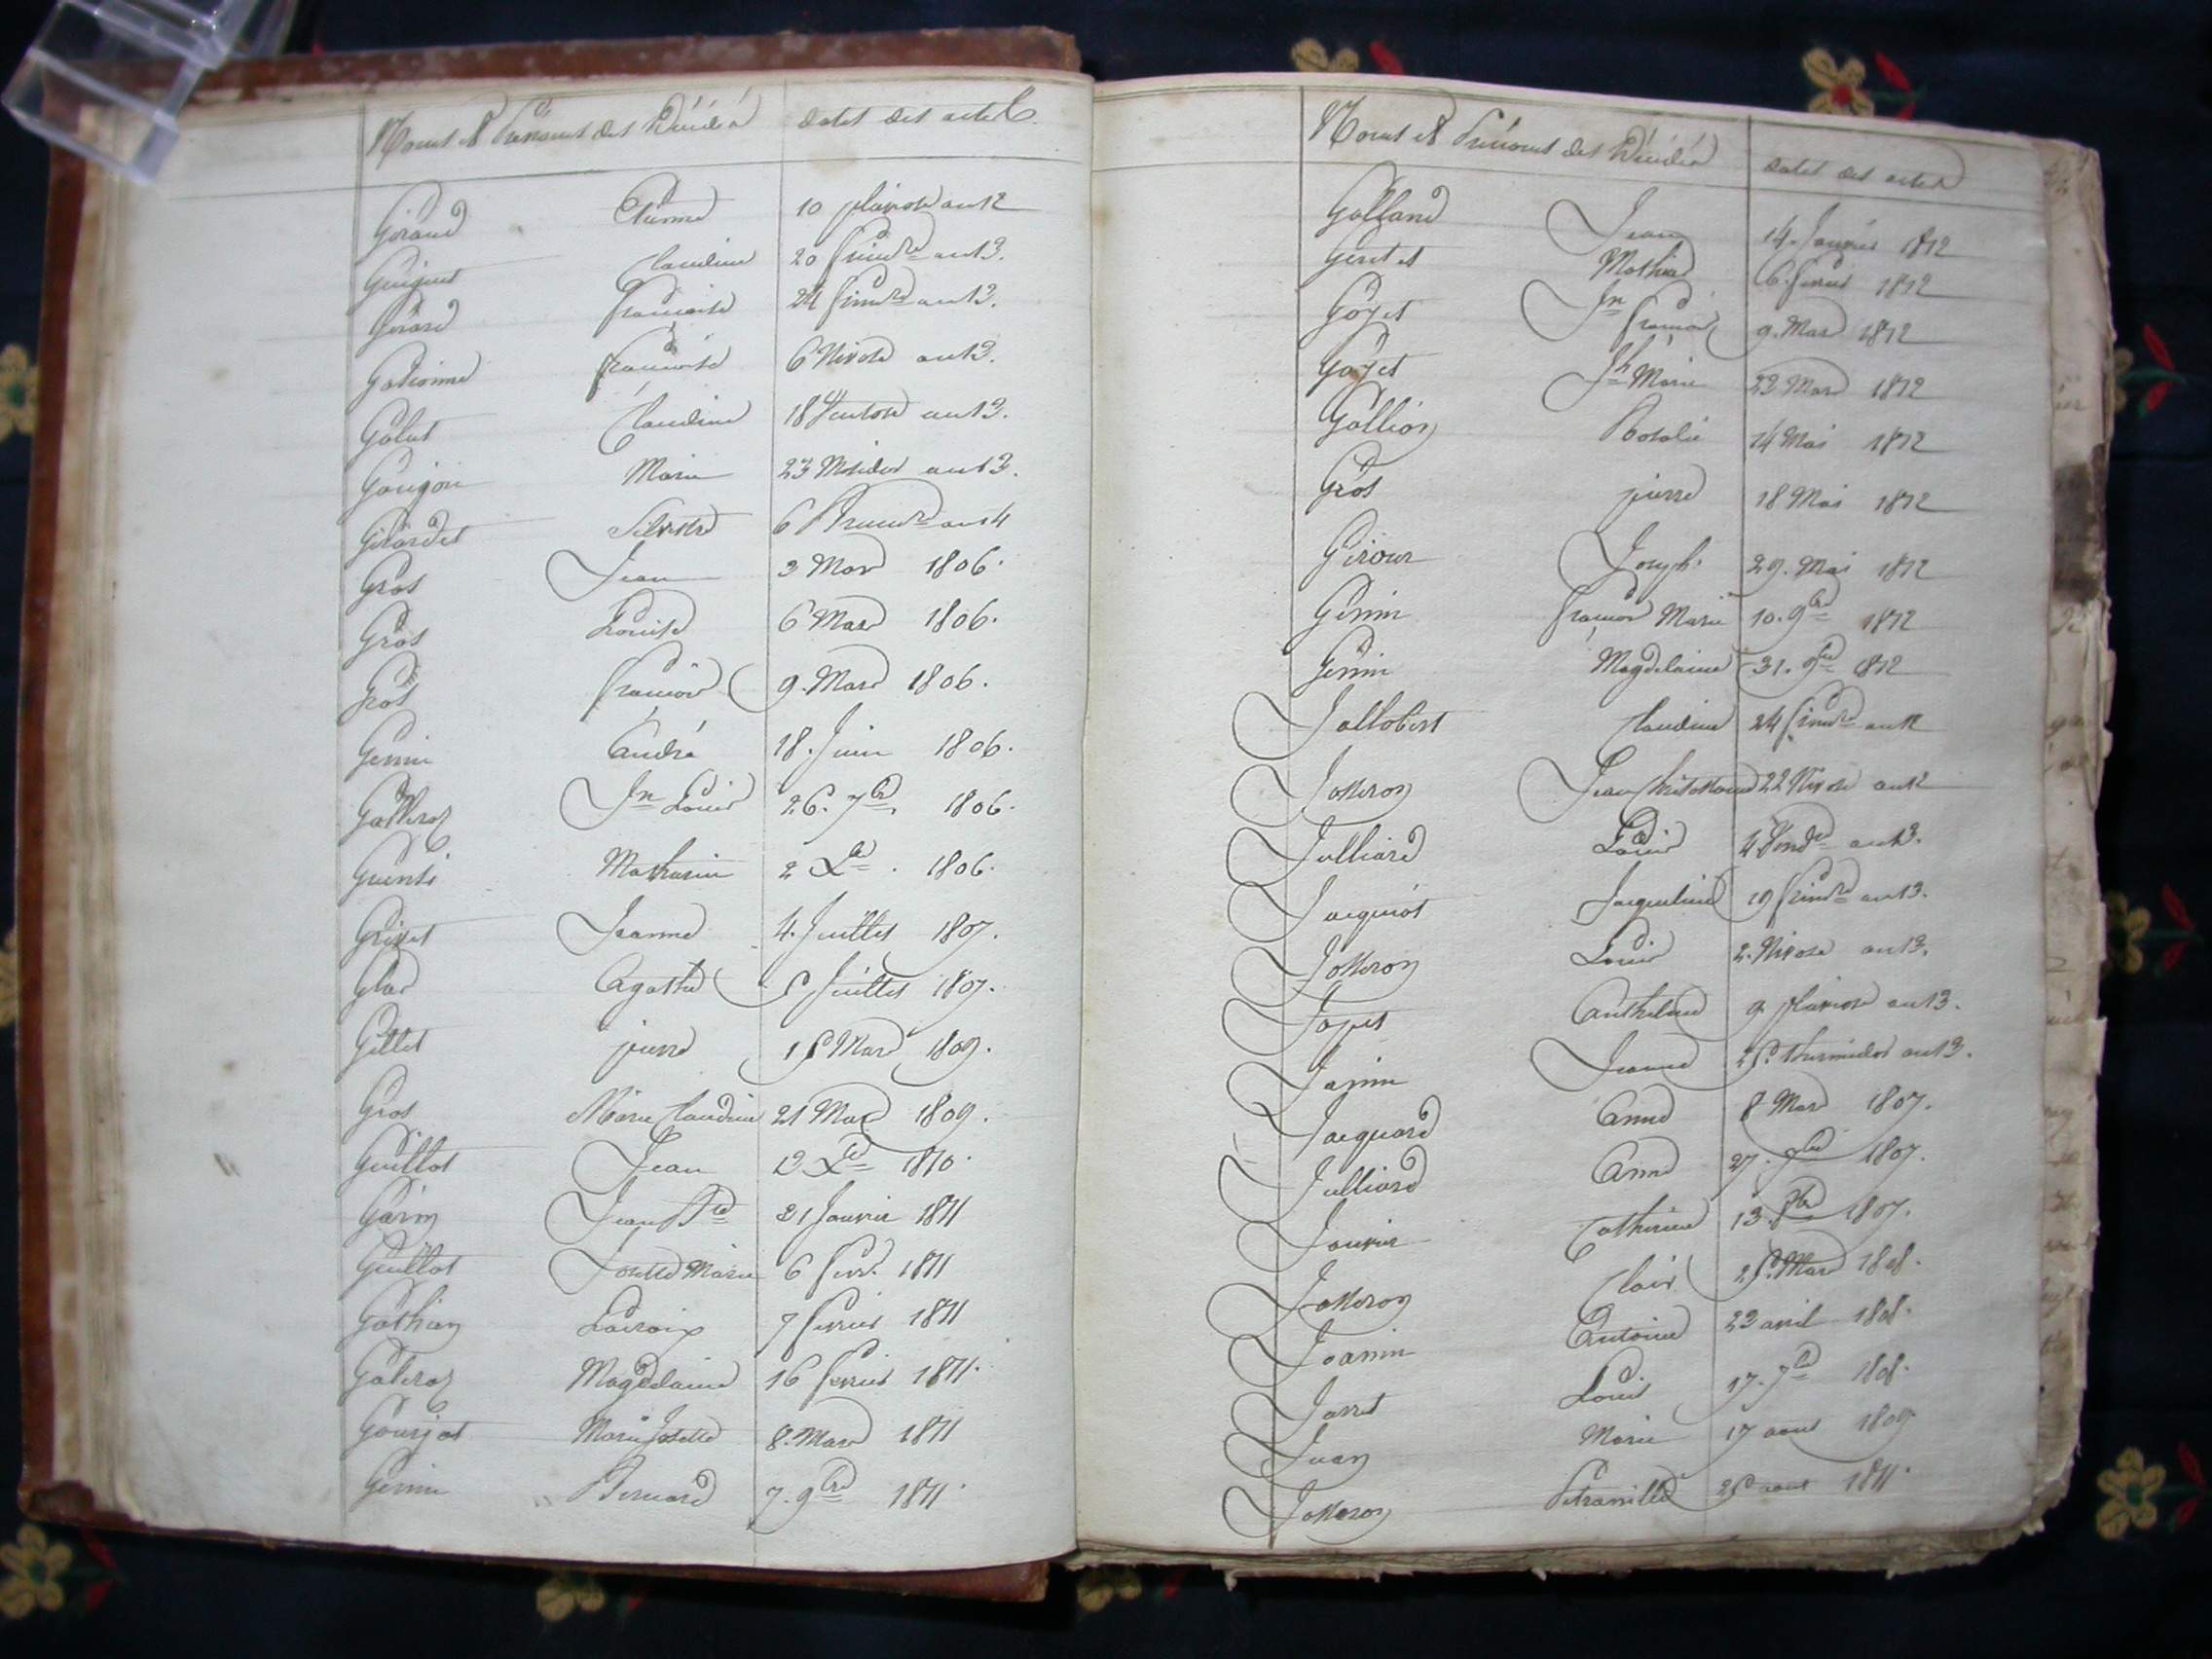 Noms et Prénoms des Décédés dates des actes.
Giraud Etienne 10 pluviose an 12
Guigue Claudine 20 frimre an 13.
Girard francoise 24 frimre an 13.
francoise 6 Nivose an 13.
Galut Claudine 18 Ventose an 13.
Goujon Marie 23 Mesidor an 13.
Girardet Silvestre 6 Brumre an 14
Gros Jean 3 Mars 1806.
Gros Louise 6 Mars 1806.
Gros francois 9. Mars 1806.
Genin André 18. Juin 1806.
Jn Louis 26. 7bre 1806.
Mathurin 2 Xbre 1806.
Grivet Jeanne 4. Juillet 1807.
Glas Agathe 5 Juillet 1807.
Gillet pierre 15 Mars 1809.
Gros Marie Claudine 21 Mars 1809.
Guillot Jean 13 Xbre 1810.
Garin Jean Bte 21 Janvier 1811
Guillot Josette Marie 6 fevr. 1811
Gathion Lacroix 7 fevrier 1811
Galeraz Magdelaine 16 fevrier 1811.
Gourjat Marie Josette 8. Mars 1811
Genin Bernard 7. 9bre 1811.
Noms et Prénoms des Décédés dates des actes
Golland Jean 14. Janvier 1812
Geretet Mathieu 6. fevrier 1812
Goyet Jn francois 9. Mars 1812
Goyet Jh Marie 23 Mars 1812
Gallion Rosalie 14 Mai 1812
Gros pierre 18 Mai 1812
Giroux Joseph. 29. Mai 1812
Genin francois Marie 10. 9bre 1812
Genin Magdelaine 31. 1812
Jallobert Claudine 24 frimre an 12
Josseron Jean 22 Nivose an 12
Julliard Louis 4 Vendre an 13.
Jacquiot Jacqueline 19 frimre an 13.
Josseron Louis 2. Nivose an 13.
Japet Anthelme 9. pluviose an 13.
Janin Jeanne 25. thermidor an 13.
Jacquard Anne 8 Mars 1807.
Julliard Anne 27. 7bre 1807.
Janvier Catherine 13. 8bre 1807.
Josseron Clair 25. Mars 1808.
Joannin Antoine 23 avril 1808.
Jarret Louis 17. 7bre 1808.
Juan Marie 17 aout 1809
Josseron Petronille 25 aout 1811.